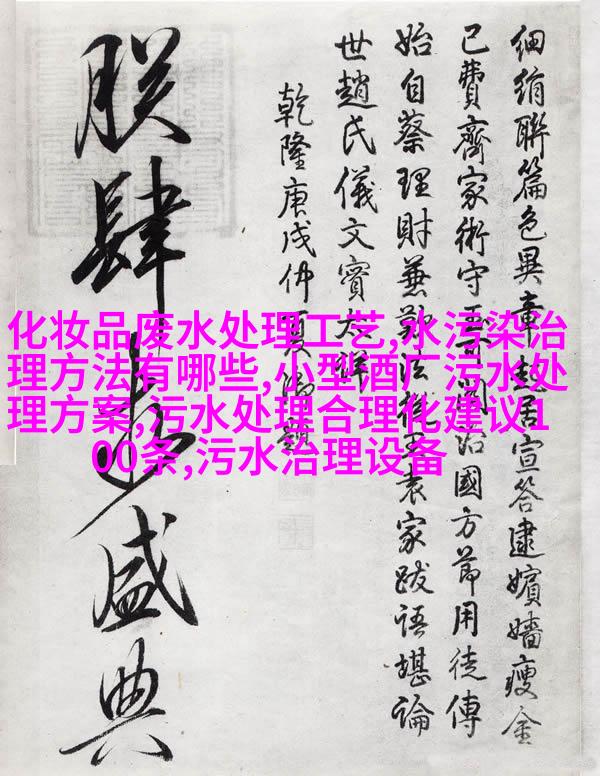 細絹聯篇色異章起居宣答逮嬪嬙瘦金
已費齊家術守閑治國方節用徒傳
始自蔡理財兼勤法袁家跋語堪論
世趙氏儀文實詳
乾隆庚戌仲夏御題
朕肆盛典
化妆品废水处理工艺,水污染治
理方法有哪些,小型酒厂污水处
理方案,污水处理合理化建议1
00条,污水治理设备